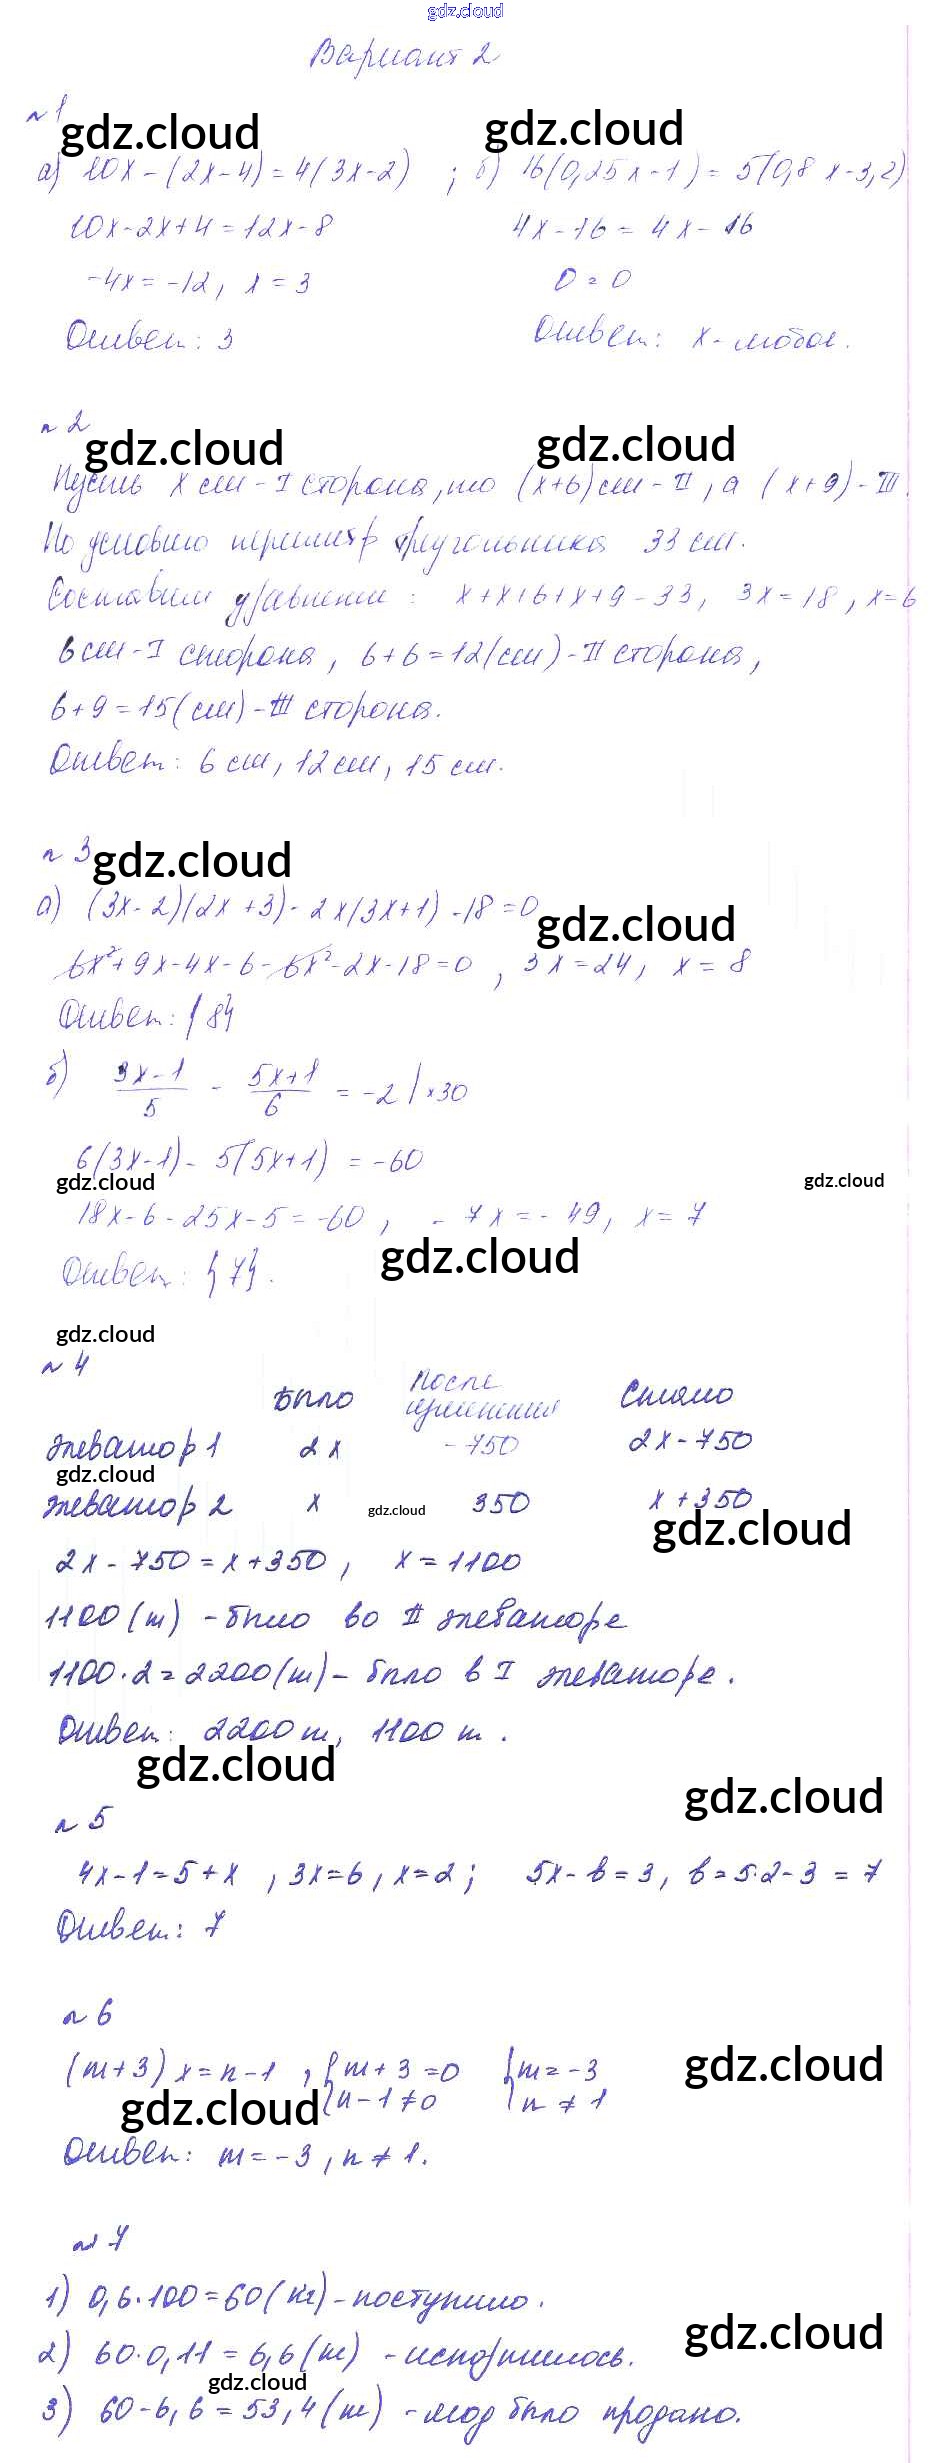 gdz.cloud
Вариант 2
№1
gdz.cloud gdz.cloud
а) 10x-(2x-4)=4(3x-2) ; б) 16(0,25x-1)=5(0,8x-3,2)
10x-2x+4=12x-8 4x-16=4x-16
-4x=-12, x=3 0=0
Ответ: 3 Ответ: x-любое.
№2
gdz.cloud gdz.cloud
Пусть x см-I сторона, то (x+6)см-II, а (x+9)-III.
По условию периметр треугольника 33 см.
Составим уравнение: x+x+6+x+9-33, 3x=18, x=6
6см-I сторона, 6+6=12(см)-II сторона,
6+9=15(см)-III сторона.
Ответ: 6 см, 12 см, 15 см.
№3
gdz.cloud
а) (3x-2)(2x+3)-2x(3x+1)-18=0
gdz.cloud
6x²+9x-4x-6-6x²-2x-18=0, 3x=24, x=8
Ответ: {8}
б) (3x-1)/5 - (5x+1)/6 = -2 | ×30
6(3x-1)-5(5x+1)=-60
gdz.cloud gdz.cloud
18x-6-25x-5=-60, -7x=-49, x=7
gdz.cloud
Ответ: {7}.
gdz.cloud
№4
Было После изменения Стало
элеватор 1 2x -750 2x-750
gdz.cloud
элеватор 2 x 350 x+350
gdz.cloud gdz.cloud
2x-750=x+350, x=1100
1100(т)-было во II элеваторе
1100·2=2200(т)-было в I элеваторе.
Ответ: 2200 т, 1100 т.
gdz.cloud gdz.cloud
№5
4x-1=5+x, 3x=6, x=2; 5x-b=3, b=5·2-3=7
Ответ: 7
№6
(m+3)x=n-1, {m+3=0 {m=-3
gdz.cloud
{n-1≠0 {n≠1
gdz.cloud
Ответ: m=-3, n≠1.
№7
1) 0,6·100=60(кг)-поступило.
gdz.cloud
2) 60·0,11=6,6(т)-испортилось.
gdz.cloud
3) 60-6,6=53,4(т)-мод было продано.